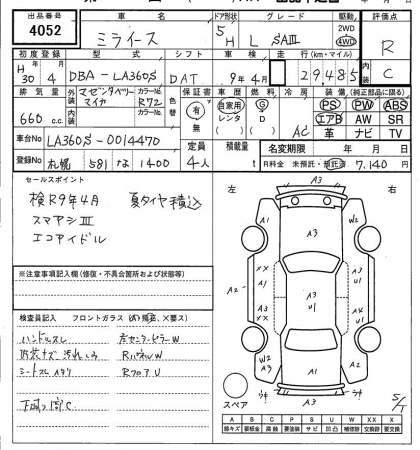 出品番号 車名 ドア形状 グレード 駆動 評価点
4052 ミライース 5 H L SAⅢ 2WD 4WD R
初度登録 型式 シフト 車検 走行(km・マイル) 外装
H 30年 4月 DBA-LA360S DAT 9年4月 29,485 内装 C
排気量 外装 カラーNo. 色替 保証書 車歴 燃料 冷房 装備(純正部品に限る)
660 c.c. マゼンタベリーマイカ R72 有 無 自家用 レンタ G D AC PS PW ABS
内装 カラーNo. エアB AW SR
革 ナビ TV
車台No LA360S-0014470 定員 積載量 名変期限 年 月 日
登録No 札幌 581 な 1400 4人 t R料金 未預託・預託済 7,140円
セールスポイント
検R9年4月 夏タイヤ積込
スマアシⅢ
エコアイドル
※注意事項記入欄(修復・不具合箇所および状態等)
検査員記入 フロントガラス
ハンドルスレ 左センターピラーW
内装キズ 汚れ シミ RパネルW
シートスレ RフロアU
下廻り C
左 右
A3
A1 A3 W2
XX XX
A2 A1 A3 U1 A3 U1
XX XX
W2 A3 A1 A2
A3
スペア
5/1
A B C P S U W X XX
線キズ 要板金 腐蝕 要塗装 サビ 凹凸 補修跡 交換跡 要交換